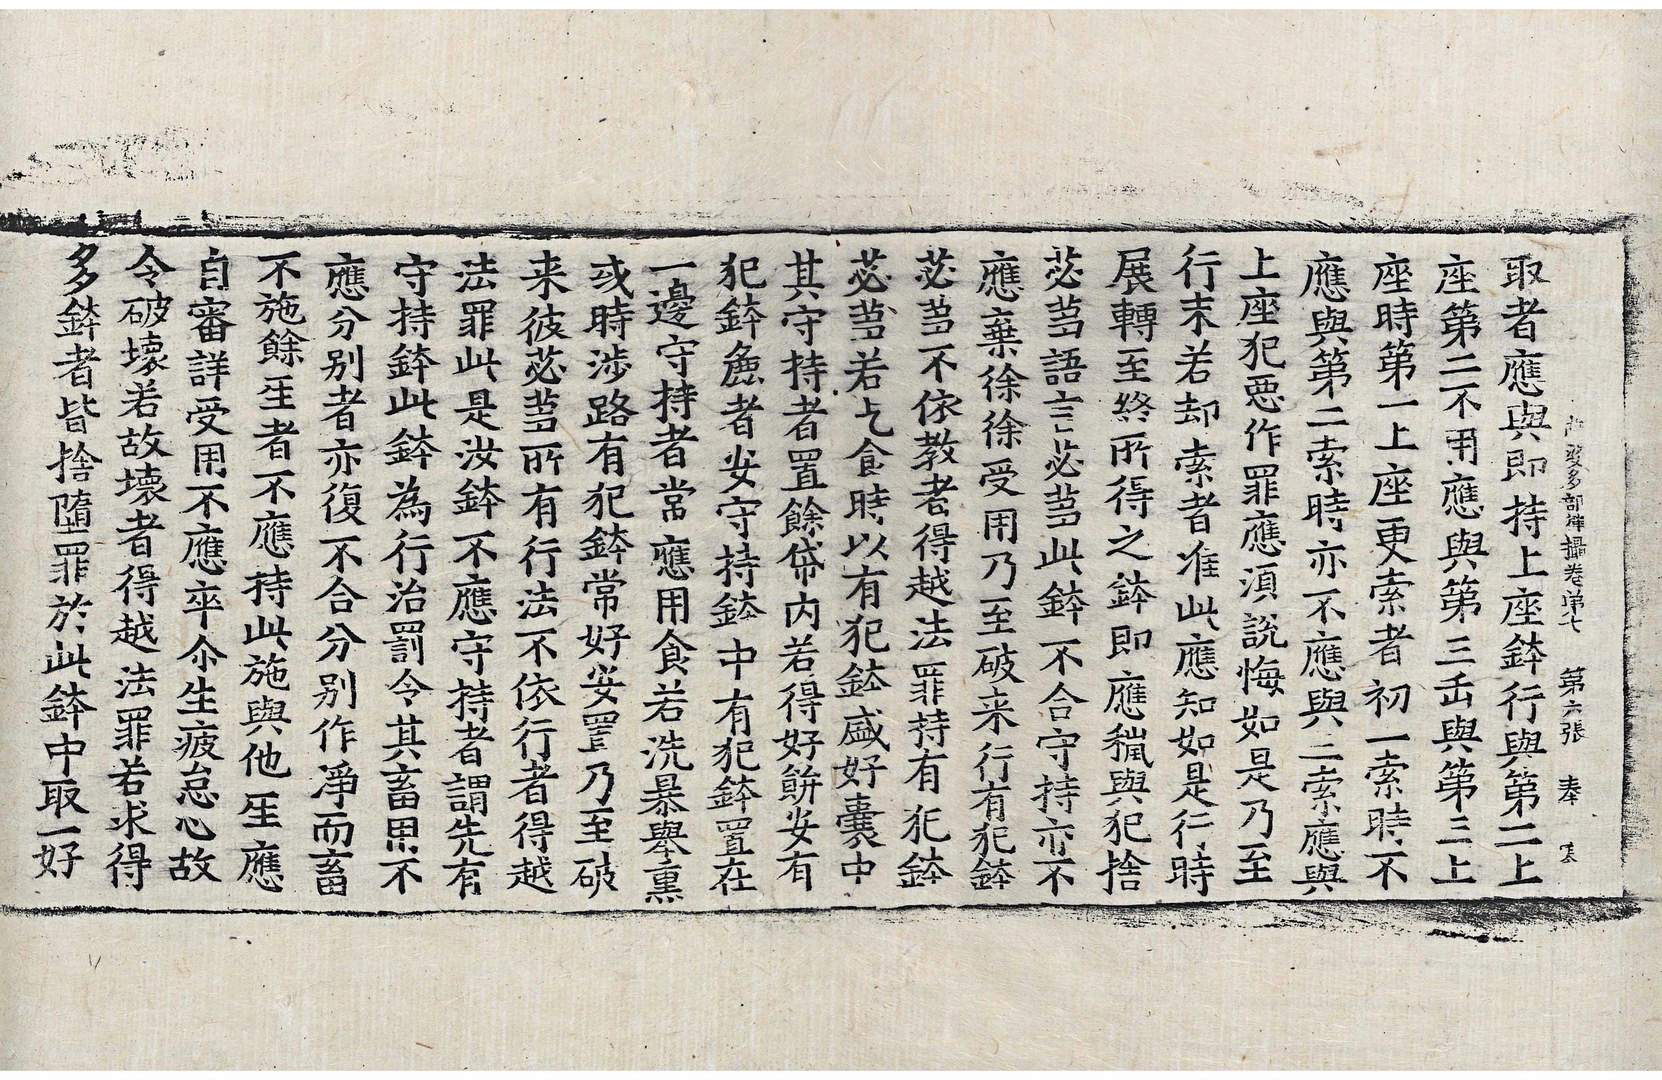 婆多部律攝卷第七 第六張 奉
取者應與即持上座鉢行與第二上
座第二不用應與第三缶與第三上
座時第一上座更索者初一索時不
應與第二索時亦不應與三索應與
上座犯惡作罪應湏說悔如是乃至
行末若却索者准此應知如是行時
展轉至終所得之鉢即應䅐與犯捨
苾蒭語言苾蒭此鉢不合守持亦不
應棄徐徐受用乃至破来行有犯鉢
苾蒭不依教者得越法罪持有犯鉢
苾蒭若乞食時以有犯鉢盛好囊中
其守持者置餘帒內若得好餅安有
犯鉢麁者安守持鉢中有犯鉢置在
一邊守持者常應用食若洗暴舉熏
或時涉路有犯鉢常好安置乃至破
来彼苾蒭所有行法不依行者得越
法罪此是汝鉢不應守持者謂先有
守持鉢此鉢為行治罰令其畜用不
應分別者亦復不合分別作淨而畜
不施餘𤯔者不應持此施與他𤯔應
自審詳受用不應卒尒生疲怠心故
令破壞若故壞者得越法罪若求得
多鉢者皆捨墮罪於此鉢中取一好